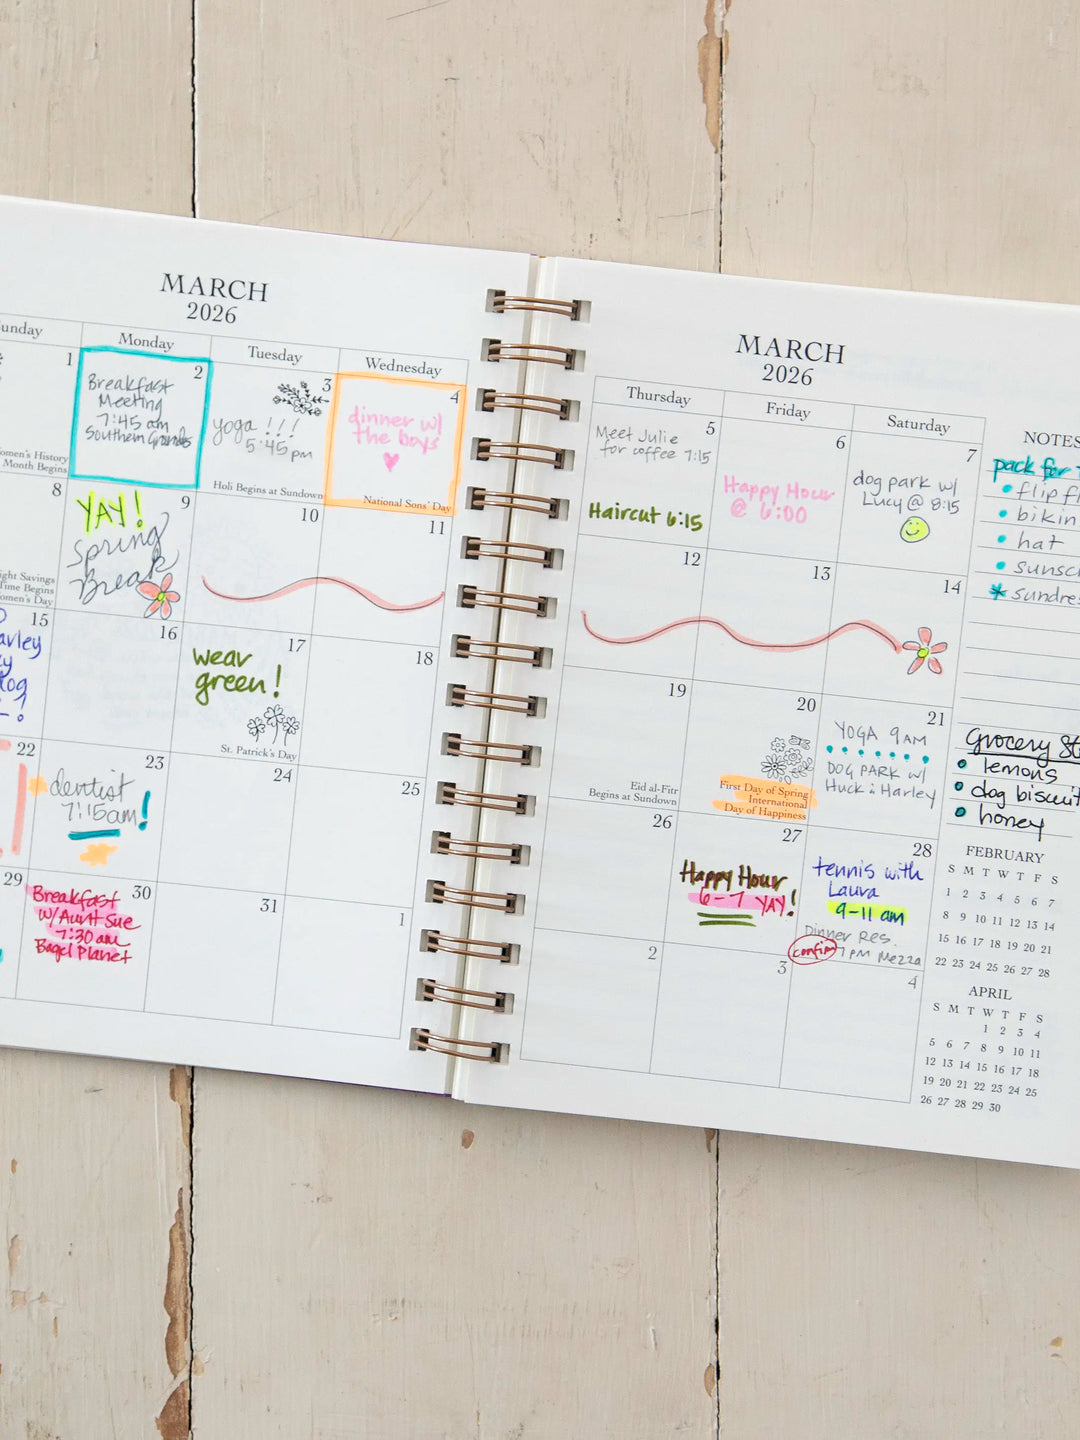 MARCH
2026
Monday
Tuesday
Wednesday
1
Women's History
Month Begins
2
Breakfast
Meeting
7:45 am
Southern Grounds
3
yoga !!!
5:45pm
Holi Begins at Sundown
4
dinner w/
the boys
National Sons' Day
8
Time Begins
9
YAY!
Spring
Break
10
11
15
16
17
wear
green!
St. Patrick's Day
18
22
23
dentist
7:15am!
24
25
29
30
Breakfast
w/Aunt Sue
7:30 am
Bagel Planet
31
1
MARCH
2026
Thursday
Friday
Saturday
5
Meet Julie
for coffee 7:15
Haircut 6:15
6
Happy Hour
@ 6:00
7
dog park w/
Lucy @ 8:15
12
13
14
19
Eid al-Fitr
Begins at Sundown
20
First Day of Spring
International
Day of Happiness
21
YOGA 9AM
DOG PARK w/
Huck & Harley
26
27
Happy Hour
6-7 YAY!
28
tennis with
Laura
9-11 am
Dinner Res.
confirm 7PM Mezza
2
3
4
NOTES
pack for
flip
hat
Grocery
lemons
dog biscuit
honey
FEBRUARY
S M T W T F S
1 2 3 4 5 6 7
8 9 10 11 12 13 14
15 16 17 18 19 20 21
22 23 24 25 26 27 28
APRIL
S M T W T F S
1 2 3 4
5 6 7 8 9 10 11
12 13 14 15 16 17 18
19 20 21 22 23 24 25
26 27 28 29 30